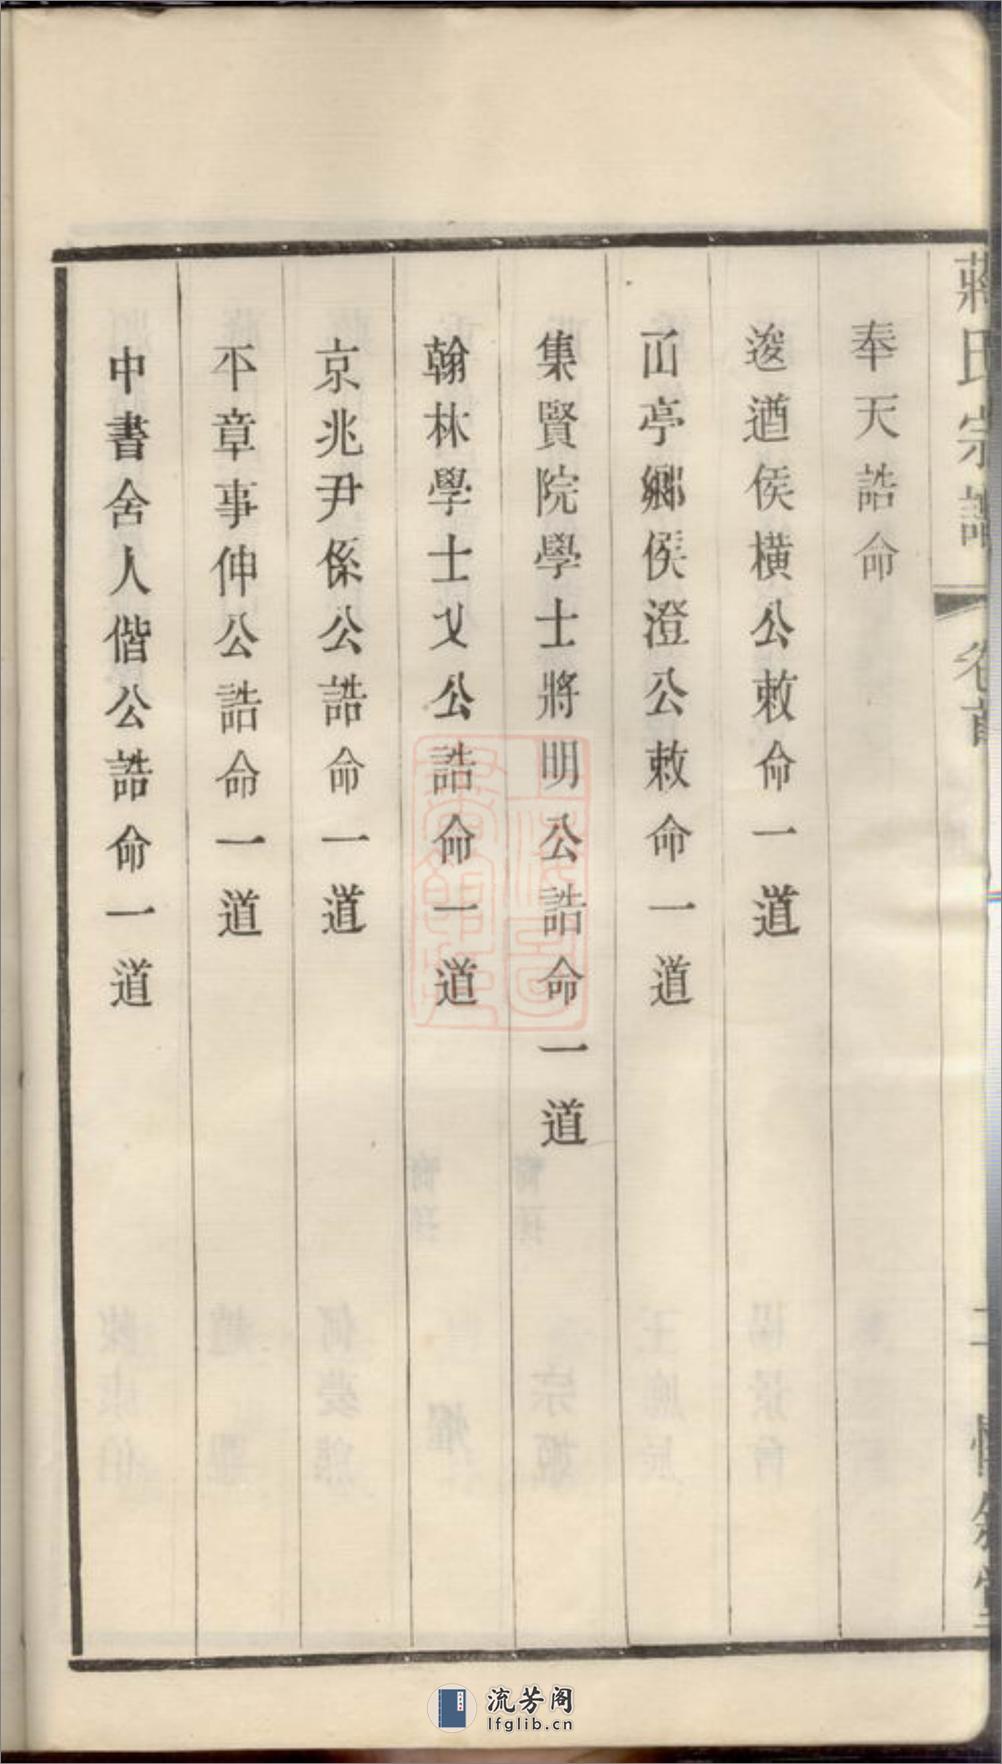 蔣氏宗譜
卷首
奉天誥命
逡遒侯橫公敕命一道
亭鄉侯澄公敕命一道
集賢院學士將明公誥命一道
翰林學士乂公誥命一道
京兆尹係公誥命一道
平章事伸公誥命一道
中書舍人偕公誥命一道
流芳阁
lfglib.cn